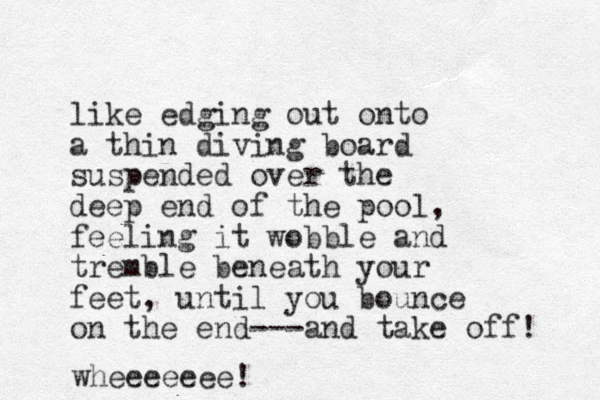 like edging out onto
a thin diving board
suspended over the
deep end of the pool,
feeling it wobble and
tremble beneath your
feet, until you bounce
on the end---and take off!
wheeeeeee!